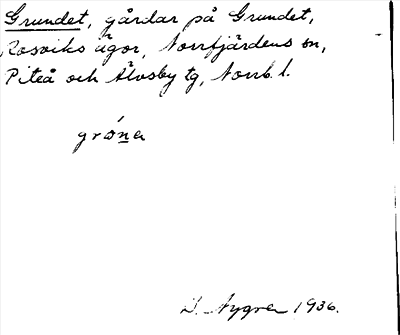 Grundet, gårdar på Grundet,
Rosviks ägor, Norrfjärdens sn,
Piteå och Älvsby tg, Norrb. l.
D. Nygren 1936.